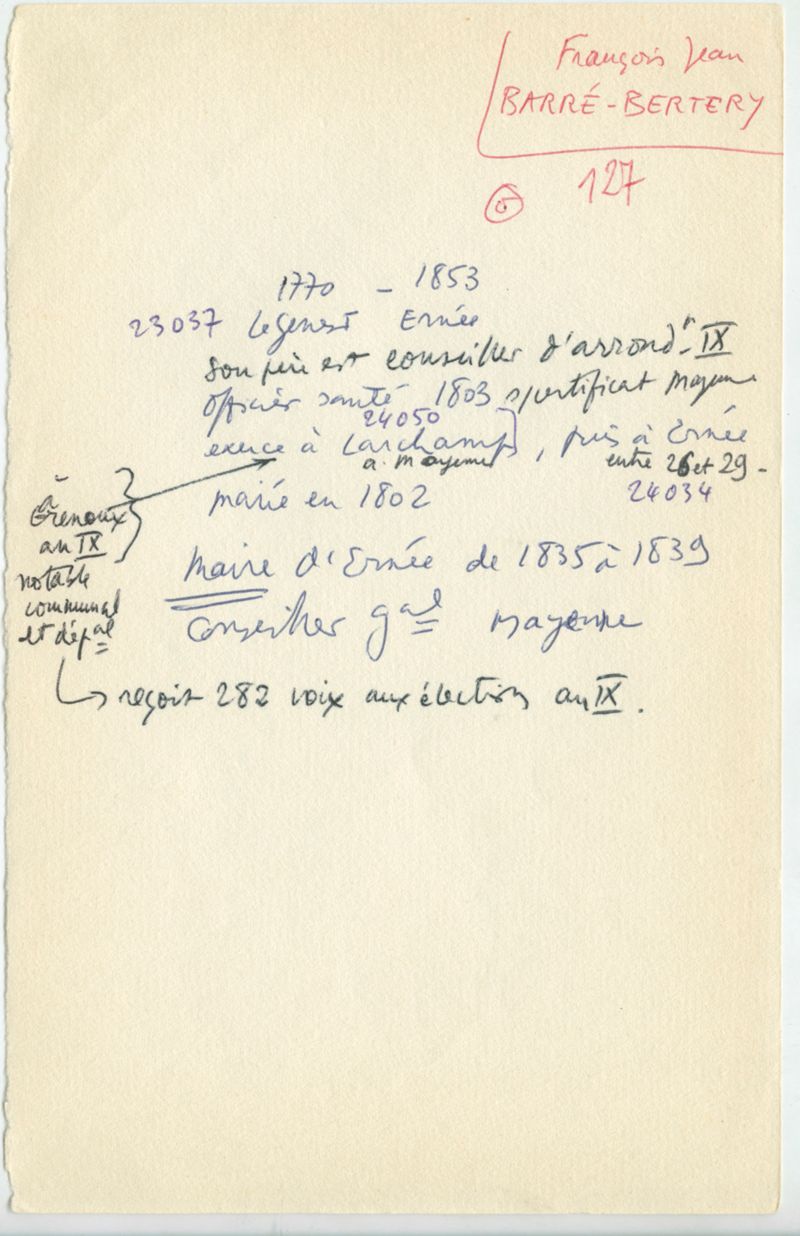 François Jean
BARRÉ-BERTERY
127
1770 - 1853
23037 Legenest Ernée
son père est conseiller d'arrond. IX
officier santé 1803 s/certificat Mayenne
24050
exerce à Larchamp, puis à Ernée
a. Mayenne entre 26 et 29 -
marié en 1802 24034
à
Grenoux
an IX
notable
communal
et dépal
Maire d'Ernée de 1835 à 1839
Conseiller gal Mayenne
reçoit 282 voix aux élections an IX.